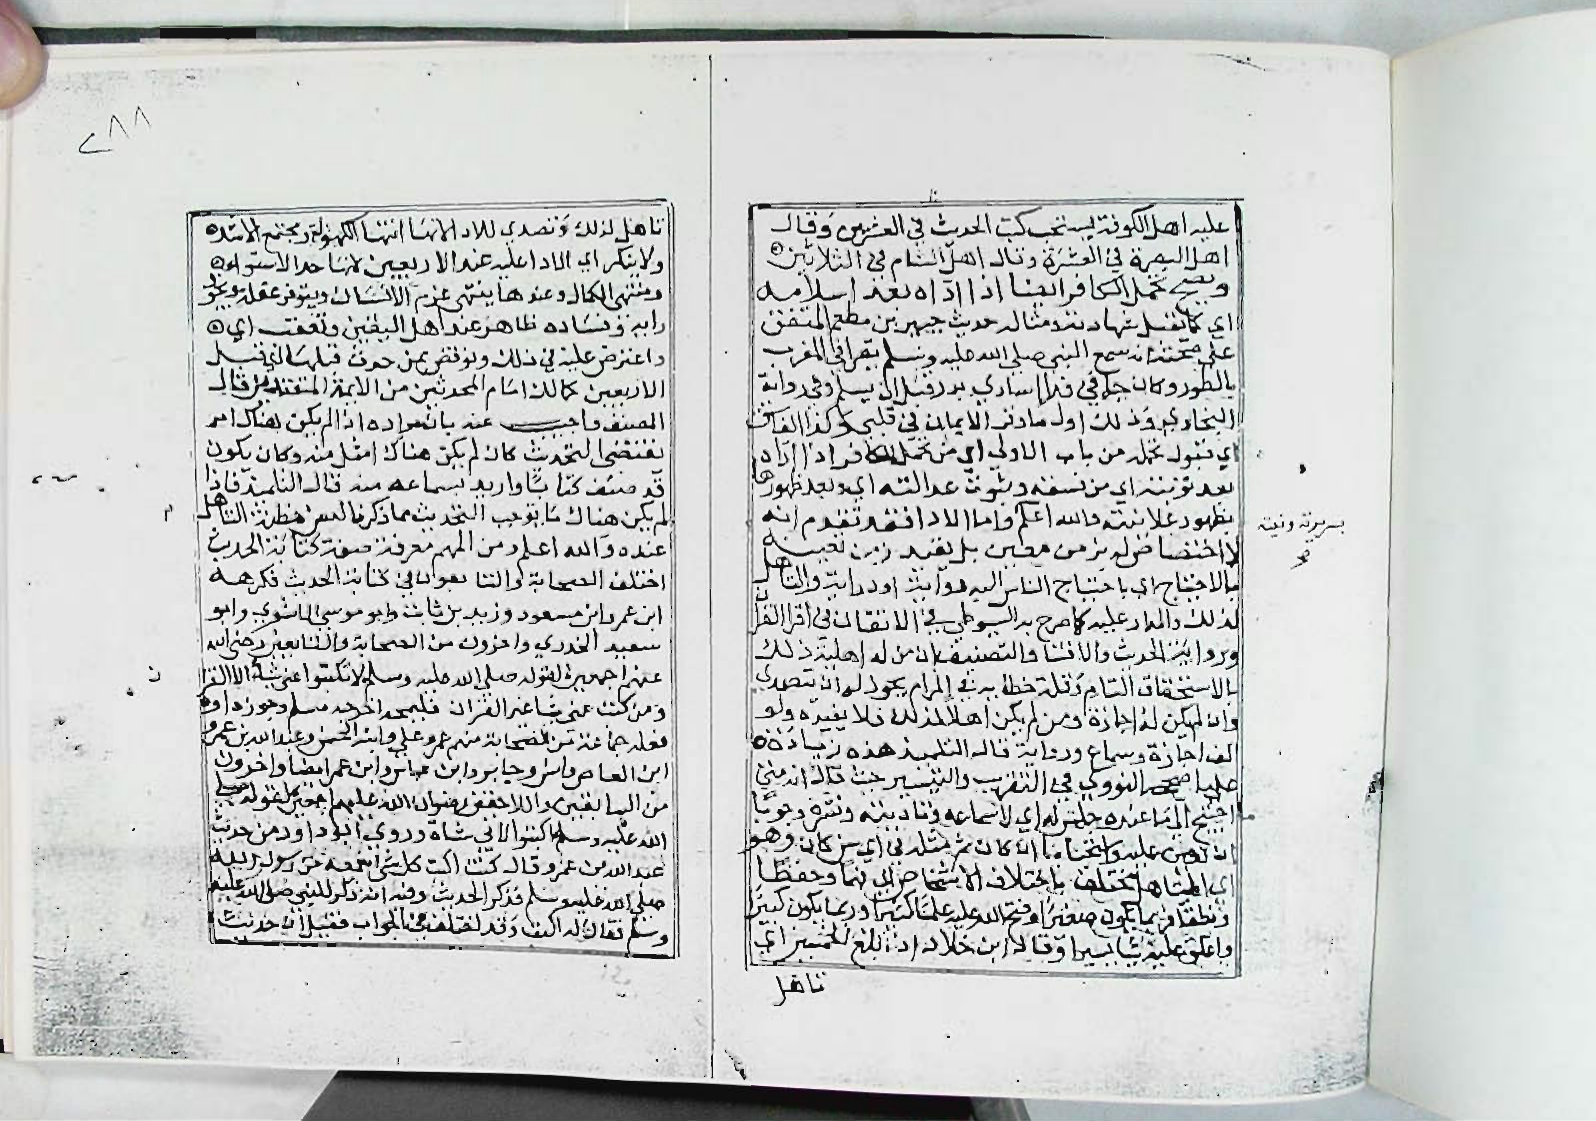 عليه اهل الكوفة يستحب كتب الحديث في العشرين وقال
اهل البصرة في العشرة وقال اهل الشام في الثلاثين
ويصح تحمل الكافر ايضا اذا اداه بعد اسلامه
اي كما تقبل شهادته مثاله حديث جبير بن مطعم المتفق
على صحته انه سمع النبي صلى الله عليه وسلم يقرا في المغرب
بالطور وكان جا في فدا اسارى بدر قبل ان يسلم وفي رواية
البخاري وذلك اول ما وقر الايمان في قلبي وكذا الفاسق
اي تقبل تحمله من باب الاولى اي من تحمل الكافر اذا اداه
بعد توبته اي من فسقه وثبوت عدالته اي وبعد ظهورها
بظهور علانيته والله اعلم واما الادا فقد تقدم انه
لا اختصاص له بزمن معين بل يقيد زمن تعيينه
بالاحتياج اي باحتياج الناس اليه رواية او دراية والتاهل
لذلك والمدار عليه كما صرح به السيوطي في الاتقان في اقرا القرا
ورواية الحديث والافتا والتصنيف ان من له اهلية ذلك
بالاستحقاق التام وقلة خطا به في المرام يجوز له ان يتصدى
وان لم يكن له اجازة ومن لم يكن اهلا لذلك فلا يفيده ولو
الف اجازة وسماع ورواية قال التلميذ هذه زيادة
عليها صححه النووي في التقريب والتيسير حيث قال انه متى
احتيج الى ما عنده جلس له اي لاسماعه وتاديته ونشره وجوبا
ان تعين عليه واستحبابا ان كان ثم مثله في اي سن كان وهو
اي المتاهل مختلف باختلاف الاشخاص اي فهما وحفظا
ونطقا فربما يكون صغيرا وفتح الله عليه علما كثيرا وربما يكون كبيرا
واغلق عليه شيا يسيرا وقال ابن خلاد اذا بلغ الخمسين اي
تاهل
بسريرته ونيته
صح
٢٨٨
تاهل لذلك وتصدى للادا لانها انتها الكهولة ومجتمع الاشد
ولا ينكر اي الادا عليه عند الاربعين لانها حد الاستواء
ومنتهى الكمال وعندها ينتهي عزم الانسان ويتوفر عقله ويجود
رايه وفساده ظاهر عند اهل اليقين وتعقب اي
واعترض عليه في ذلك ونوقض بمن حدث قبلها اي قبل
الاربعين كمالك امام المحدثين من الايمة المتقدمين قال
المصنف واجيب عنه بان مراده اذا لم يكن هناك امر
يقتضي التحديث كان لم يكن هناك امثل منه وكان يكون
قد صنف كتابا واريد سماعه منه قال التلميذ فاذا
لم يكن هناك ما يوجب التحديث مما ذكرنا ليس مظنة التاهل
عنده والله اعلم ومن المهم معرفة صفة كتابة الحديث
اختلف الصحابة والتابعون في كتابة الحديث فكرهه
ابن عمر وابن مسعود وزيد بن ثابت وابو موسى الاشعري وابو
سعيد الخدري واخرون من الصحابة والتابعين رضي الله
عنهم اجمعين لقوله صلى الله عليه وسلم لا تكتبوا عني شيا الا القرا
ومن كتب عني شيا غير القران فليمحه اخرجه مسلم وجوزه او
فعله جماعة من الصحابة منهم عمر وعلي وابنه الحسن وعبد الله بن عمرو
ابن العاص وانس وجابر وابن عباس وابن عمر ايضا واخرون
من السابقين واللاحقين رضوان الله عليهم اجمعين لقوله صلى
الله عليه وسلم اكتبوا لابي شاه وروى ابو داود من حديث
عبد الله بن عمرو قال كنت اكتب كل شي اسمعه من رسول الله
صلى الله عليه وسلم فذكر الحديث وفيه انه ذكر للنبي صلى الله عليه
وسلم فقال له اكتب وقد اختلف في الجواب فقيل ان حديث